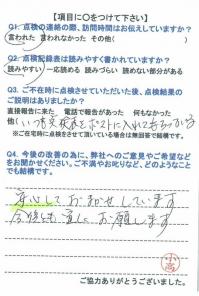 【項目に○をつけて下さい】
Q1. 点検の連絡の際、訪問時間はお伝えしていますか？
言われた 言われなかった その他( )
Q2. 点検記録表は読みやすく書かれていますか？
読みやすい 一応読める 読みづらい 読めない部分がある
Q3. ご不在時に点検させていただいた後、点検結果の
ご説明はありましたか？
直接報告に来た 電話で報告があった 何もなかった
他(いつも 結果をポストに入れてもらっている
※ご在宅時に点検をさせて頂いている場合は無回答で結構です。
Q4. 今後の改善の為に、弊社へのご意見やご希望など
をお聞かせください。ご不満やお叱りなど、どのようなこと
でも結構です。
安心しておまかせしています
今後も宜しくお願します
小高
ご協力ありがとうございました。